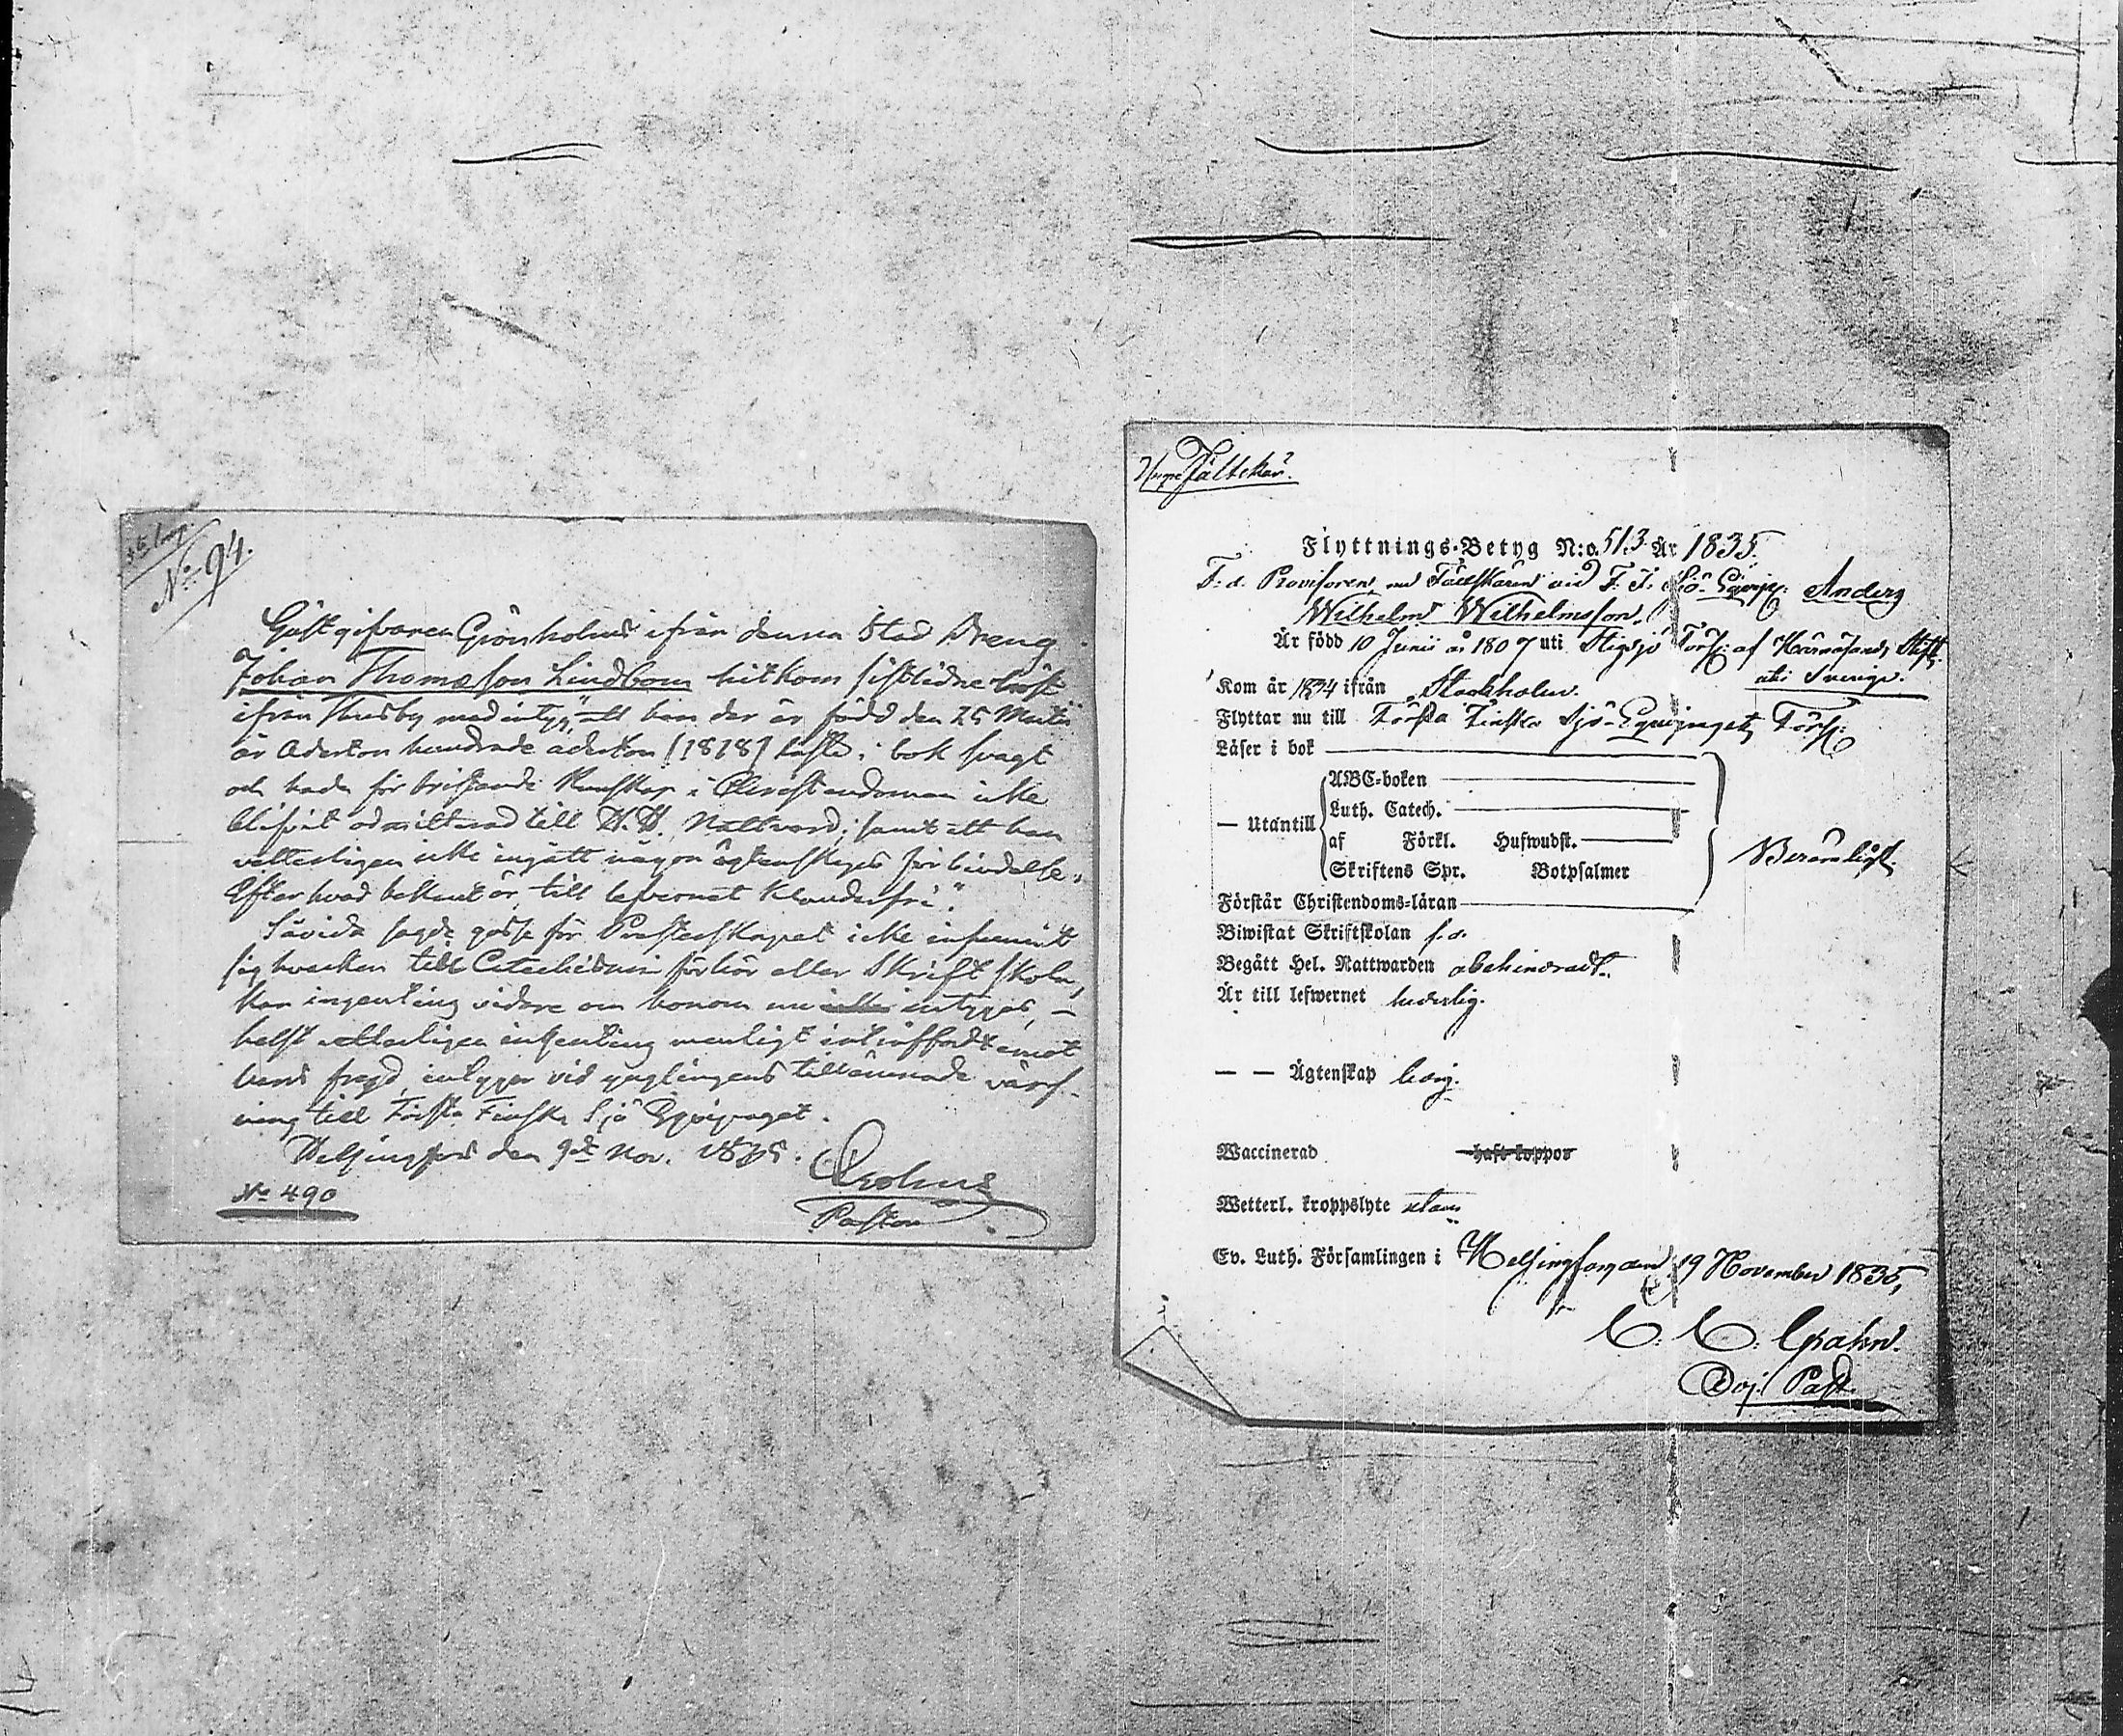 No 94.
Gästgifvaren Grönholms ifrån denna Stad Dreng
Johan Thomasson Lindbom hitkom sistlidne höst
ifrån Thusby med intyg, "att han der är född den 25 Martii
år Aderton hundrade aderton (1818) läste i bok svagt
och hade för bristande kunskap i Christendomen icke
blifvit admitterad till H. H. Nattvard; samt att han
vetterligen icke ingått någon ägtenskaps förbindelse,
Efter hvad bekant är, till lefvernet klanderfri".
Såvida sagde gosse för Presterskapet icke infunnit
sig hvarken till Catechismi förhör eller Skriftskola,
kan ingenting vidare om honom nu intygas, —
helst vetterligen ingenting menligt inträffadt emot
hans fregd, intygar vid ynglingens tillämnade värf-
ning till Första Finska Sjö Equipaget.
Helsingfors den 9de Nov. 1835.
Crohns
Pastor
No 490
Fältskär.
Flyttnings-Betyg N:o 513 År 1835.
F. d. Provisoren, nu Fältskären vid F. F. Sjö-Equip: Anders
Wilhelm Wilhelmsson,
Är född 10 Junii år 1807 uti Stigsjö Förs: af Hernösands Stift
uti Sverige.
Kom år 1834 ifrån Stockholm.
Flyttar nu till Första Finska Sjö-Equipagets Förs:
Läser i bok
— Utantill
ABC-boken
Luth. Catech.
af Förkl. Hufwudst.
Skriftens Spr. Botpsalmer
Berömligt.
Förstår Christendoms-läran
Biwistat Skriftskolan f. d.
Begått Hel. Nattwarden obehindradt.
Är till lefwernet hederlig.
— — Ägtenskap ledig.
Waccinerad haft koppor
Wetterl. kroppslyte utan
Ev. Luth. Församlingen i Helsingfors den 19 November 1835,
C. C. Grahn.
Adj. Past.